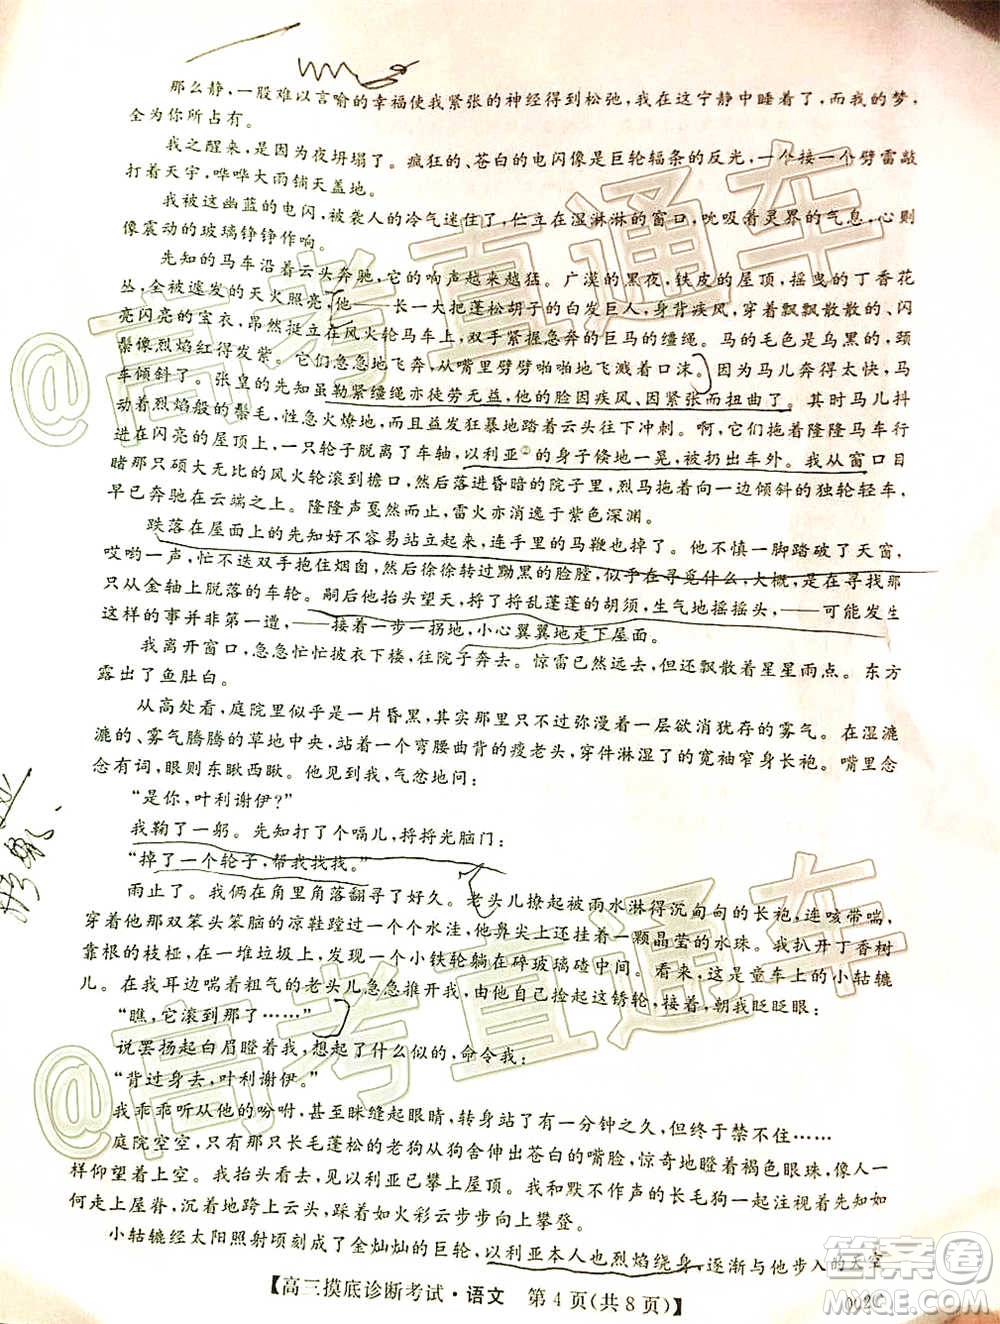 那么静，一股难以言喻的幸福使我紧张的神经得到松弛，我在这宁静中睡着了，而我的梦，
全为你所占有。
我之醒来，是因为夜坍塌了。疯狂的、苍白的电闪像是巨轮辐条的反光，一个接一个劈雷敲
打着天宇，哗哗大雨铺天盖地。
我被这幽蓝的电闪，被袭人的冷气迷住了，伫立在湿淋淋的窗口，吮吸着灵界的气息，心则
像震动的玻璃铮铮作响。
先知的马车沿着云头奔驰，它的响声越来越猛。广漠的黑夜，铁皮的屋顶，摇曳的丁香花
丛，全被遽发的天火照亮，他——一长一大把蓬松胡子的白发巨人，身背疾风，穿着飘飘散散的、闪
亮闪亮的宝衣，昂然挺立在风火轮马车上，双手紧握急奔的巨马的缰绳。马的毛色是乌黑的，颈
鬃像烈焰红得发紫。它们急急地飞奔，嘴里劈劈啪啪地飞溅着口沫。因为马儿奔得太快，马
车倾斜了。张皇的先知虽勒紧缰绳亦徒劳无益，他的脸因疾风、因紧张而扭曲了。其时马儿抖
动着烈焰般的鬃毛，性急火燎地，而且愈发狂暴地踏着云头往下冲刺。啊，它们拉着隆隆马车行
进在闪亮的屋顶上，一只轮子脱离了车轴，以利亚②的身子倏地一晃，被扔出车外。我从窗口目
睹那只硕大无比的风火轮滚过檐口，蹦进幽暗的院子里，烈马拖着一边倾斜的独轮车，
早已奔驰在云端之上。隆隆声听不见了，雷火亦消逸于紫色深渊。
跌落在屋面上的先知好不容易站立起来，连手里的马鞭也掉了。他不慎一脚踏破了天窗，
哎哟一声，忙不迭双手抱住烟囱，然后徐徐转过黝黑的脸膛，似乎在寻觅什么，大概，是在寻找那
只从金轴上脱落的车轮。嗣后他抬头望天，捋了捋乱蓬蓬的胡须，生气地摇摇头，——可能发生
这样的事并非第一遭，——接着一步一拐地，小心翼翼地走下屋面。
我离开窗口，急急忙忙披衣下楼，往院子奔去。惊雷已然远去，但还飘散着星星雨点。东方
露出了鱼肚白。
从高处看，庭院里似乎是一片昏黑，其实那里只不过弥漫着一层欲消犹存的雾气。在湿漉
漉的、雾气腾腾的草地中央，站着一个弯腰曲背的瘦老头，穿件淋湿了的宽袖窄身长袍。嘴里念
念有词，眼则东瞅西瞅。他见到我，气忿地问：
“是你，叶利谢伊？”
我鞠了一躬。先知打了个嗝儿，捋捋光脑门：
“掉了一个轮子，帮我找找。”
雨止了。我俩在角里角落翻寻了好久。老头儿撩起被雨水淋得沉甸甸的长袍，连咳带喘，
穿着他那双笨头笨脑的凉鞋蹚过一个个水洼，他鼻尖上还挂着一颗晶莹的水珠。我扒开丁香树
靠根的枝桠，在一堆垃圾上，发现一个小铁轮躺在碎玻璃碴中间。看来，这是童车上的小轱辘
儿。在我耳边喘着粗气的老头儿急急推开我，使由他自己捡起这锈轮，接着，朝我眨眨眼：
“瞧，它滚到那了……”
说罢扬起白眉瞪着我，想起了什么似的，命令我：
“背过身去，叶利谢伊。”
我乖乖听从他的吩咐，甚至眯缝起眼睛，转身站了有一分钟之久，最终于禁不住……
庭院空空，只有那只长毛蓬松的老狗从狗舍伸出苍白的嘴脸，惊奇地瞪着褐色眼珠，像人一
样仰望着上空。我抬头看去，见以利亚已攀上屋顶。我和默不作声的长毛狗一起注视着先知如
何走上屋脊，沉着地跨上云头，踩着如火彩云步步向上攀登。
小轱辘经太阳照射顷刻成了金灿灿的巨轮，以利亚本人也烈焰绕身，逐渐与他步入的天空
【高三摸底诊断考试·语文 第4页(共8页)】
002C
@高考直通车
@高考直通车
答案圈
MXQE.COM